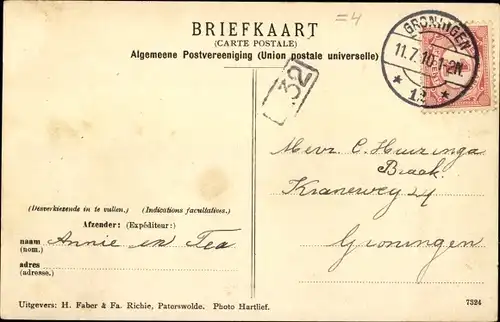 =4
BRIEFKAART
(CARTE POSTALE)
Algemeene Postvereeniging (Union postale universelle)
GRONINGEN
11.7.10.1-2N.
* 12 *
32
Mevr. C. Huizinga
Braak.
Kraneweg 24
Groningen
(Desverkiezende in te vullen.) (Indications facultatives.)
Afzender: (Expéditeur:)
naam Annie en Tea
(nom.)
adres
(adresse.)
Uitgevers: H. Faber & Fa. Richie, Paterswolde. Photo Hartlief.
7324